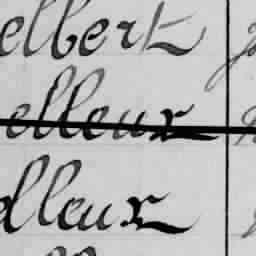 elbert
elleux
elleux